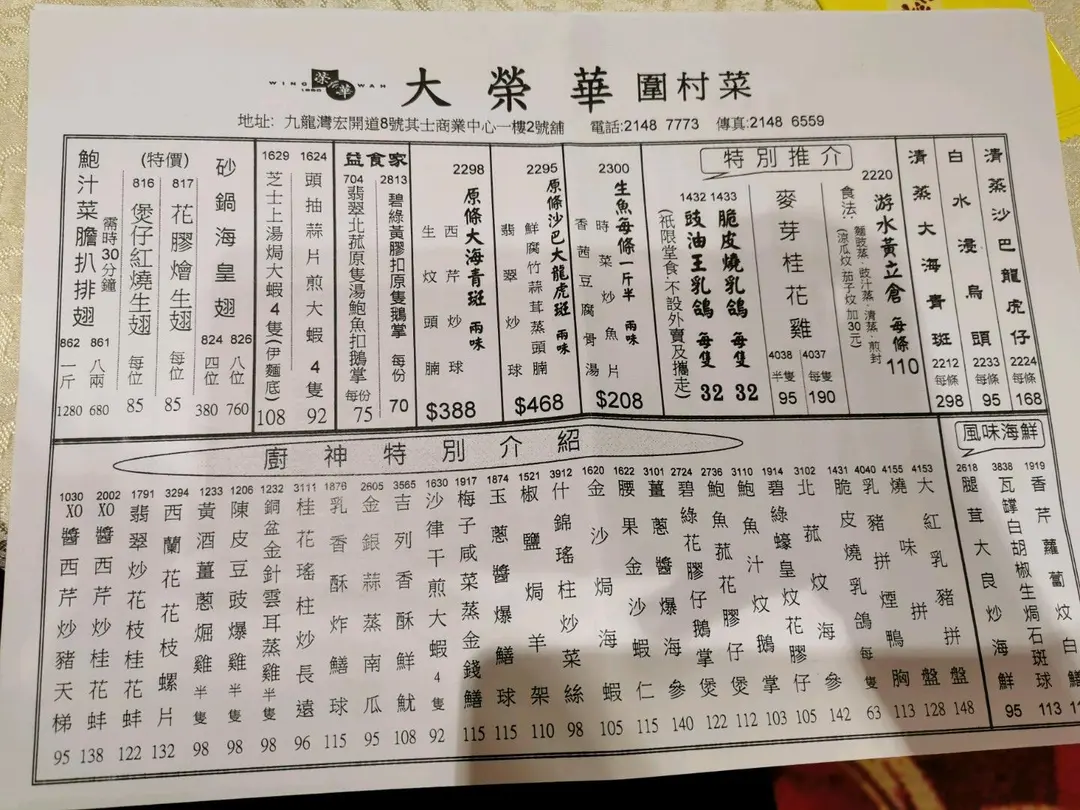 WING WAH
榮華
1950
大榮華 圍村菜
地址: 九龍灣宏開道8號其士商業中心一樓2號舖 電話:2148 7773 傳真:2148 6559
清蒸沙巴龍虎仔 2224 每條 168
白水浸烏頭 2233 每條 95
清蒸大海青斑 2212 每條 298
特別推介
2220 游水黃立倉 每條 110
食法:(麵豉蒸·豉汁蒸·清蒸·煎封
(涼瓜炆 茄子炆 加30元)
麥芽桂花雞
4037 每隻 190
4038 半隻 95
1433 脆皮燒乳鴿 每隻 32
1432 豉油王乳鴿 每隻 32
(祇限堂食·不設外賣及攜走)
2300 生魚每條一斤半 兩味
時菜炒魚片
香茜豆腐魚骨湯
$208
2295 原條沙巴大龍虎斑 兩味
鮮腐竹蒜茸蒸頭腩
翡翠炒球
$468
2298 原條大海青斑 兩味
西芹炒球
生炆頭腩
$388
益食家
2813 碧綠黃膠扣原隻鵝掌 每份 70
704 翡翠北菰原隻湯鮑魚扣鵝掌 每份 75
1624 頭抽蒜片煎大蝦4隻 92
1629 芝士上湯焗大蝦4隻(伊麵底) 108
砂鍋海皇翅
826 八位 760
824 四位 380
(特價)
817 花膠燴生翅 每位 85
816 煲仔紅燒生翅 每位 85
鮑汁菜膽扒排翅
需時30分鐘
861 八兩 680
862 一斤 1280
風味海鮮
1919 香芹蘿蔔炆白鱔
3838 瓦罉白胡椒生焗石斑球 113
2618 腿茸大良炒海鮮 95
廚神特別介紹
4153 大紅乳豬拼盤 148
4155 燒味拼盤 128
4040 乳豬拼煙鴨胸 113
1431 脆皮燒乳鴿每隻 63
3102 北菰炆海參 142
1914 碧綠蠔皇炆花膠仔 105
3110 鮑魚汁炆鵝掌 103
2736 鮑魚菰花膠仔煲 112
2724 碧綠花膠仔鵝掌煲 122
3101 薑蔥醬爆海參 140
1622 腰果金沙蝦仁 115
1620 金沙焗海蝦 105
3912 什錦瑤柱炒菜絲 98
1521 椒鹽焗羊架 110
1874 玉蔥醬爆鱔球 115
1917 梅子咸菜蒸金錢鱔 115
1630 沙律干煎大蝦4隻 92
3565 吉列香酥鮮魷 108
2605 金銀蒜蒸南瓜 95
1876 乳香酥炸鱔球 115
3111 桂花瑤柱炒長遠 96
1232 銅盆金針雲耳蒸雞半隻 98
1206 陳皮豆豉爆雞半隻 98
1233 黃酒薑蔥煀雞半隻 98
3294 西蘭花花枝螺片 132
1791 翡翠炒花枝桂花蚌 122
2002 XO醬西芹炒桂花蚌 138
1030 XO醬西芹炒豬天梯 95